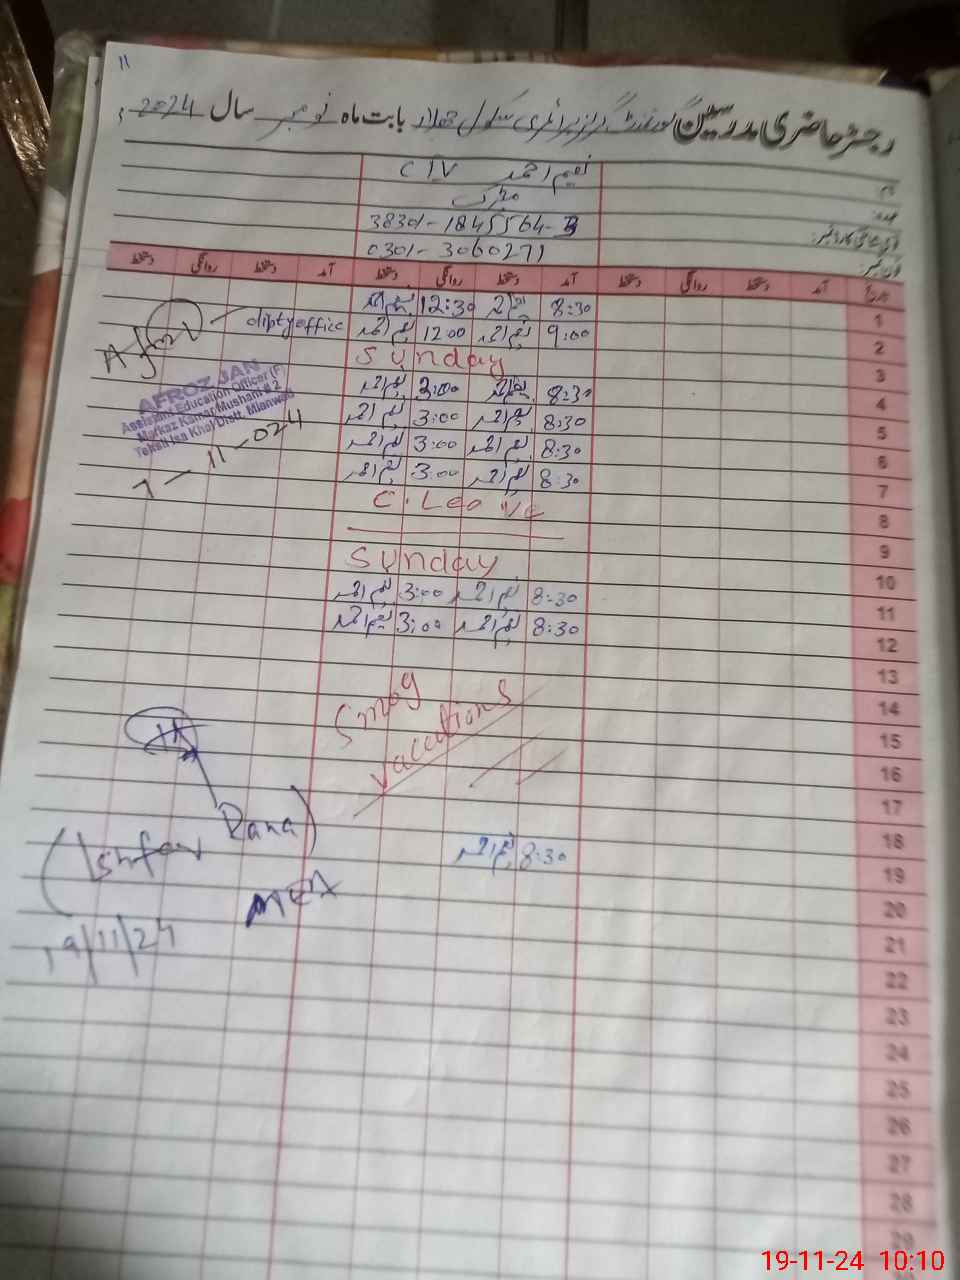 11
رجسٹر حاضری مدرسین گورنمنٹ گرلز پرائمری سکول بابت ماہ نومبر سال 2024ء
نام نعیم احمد C I V
عہدہ: میٹرک
شناختی کارڈ نمبر: 38301-1845564-3
فون نمبر: 0301-3060271
تاریخ آمد دستخط روانگی دستخط آمد دستخط روانگی دستخط آمد دستخط روانگی دستخط
1 8:30 نعیم احمد 12:30 نعیم احمد
2 9:00 نعیم احمد 12:00 نعیم احمد diptyoffice
3 Sunday
4 8:30 نعیم احمد 3:00 نعیم احمد
5 8:30 نعیم احمد 3:00 نعیم احمد
6 8:30 نعیم احمد 3:00 نعیم احمد
7 8:30 نعیم احمد 3:00 نعیم احمد
8 C. Lea ve
9
10 Sunday
11 8:30 نعیم احمد 3:00 نعیم احمد
12 8:30 نعیم احمد 3:00 نعیم احمد
13
14 Smog
15 vacations
16
17
18
19 8:30 نعیم احمد
20
21
22
23
24
25
26
27
28
29
AFROZ JAN
Assistant Education Officer (F)
Markaz Kamar Mushani # 2
Tehsil Isa Khel Distt. Mianwali
7-11-024
Rana)
MEA
19/11/24
19-11-24 10:10